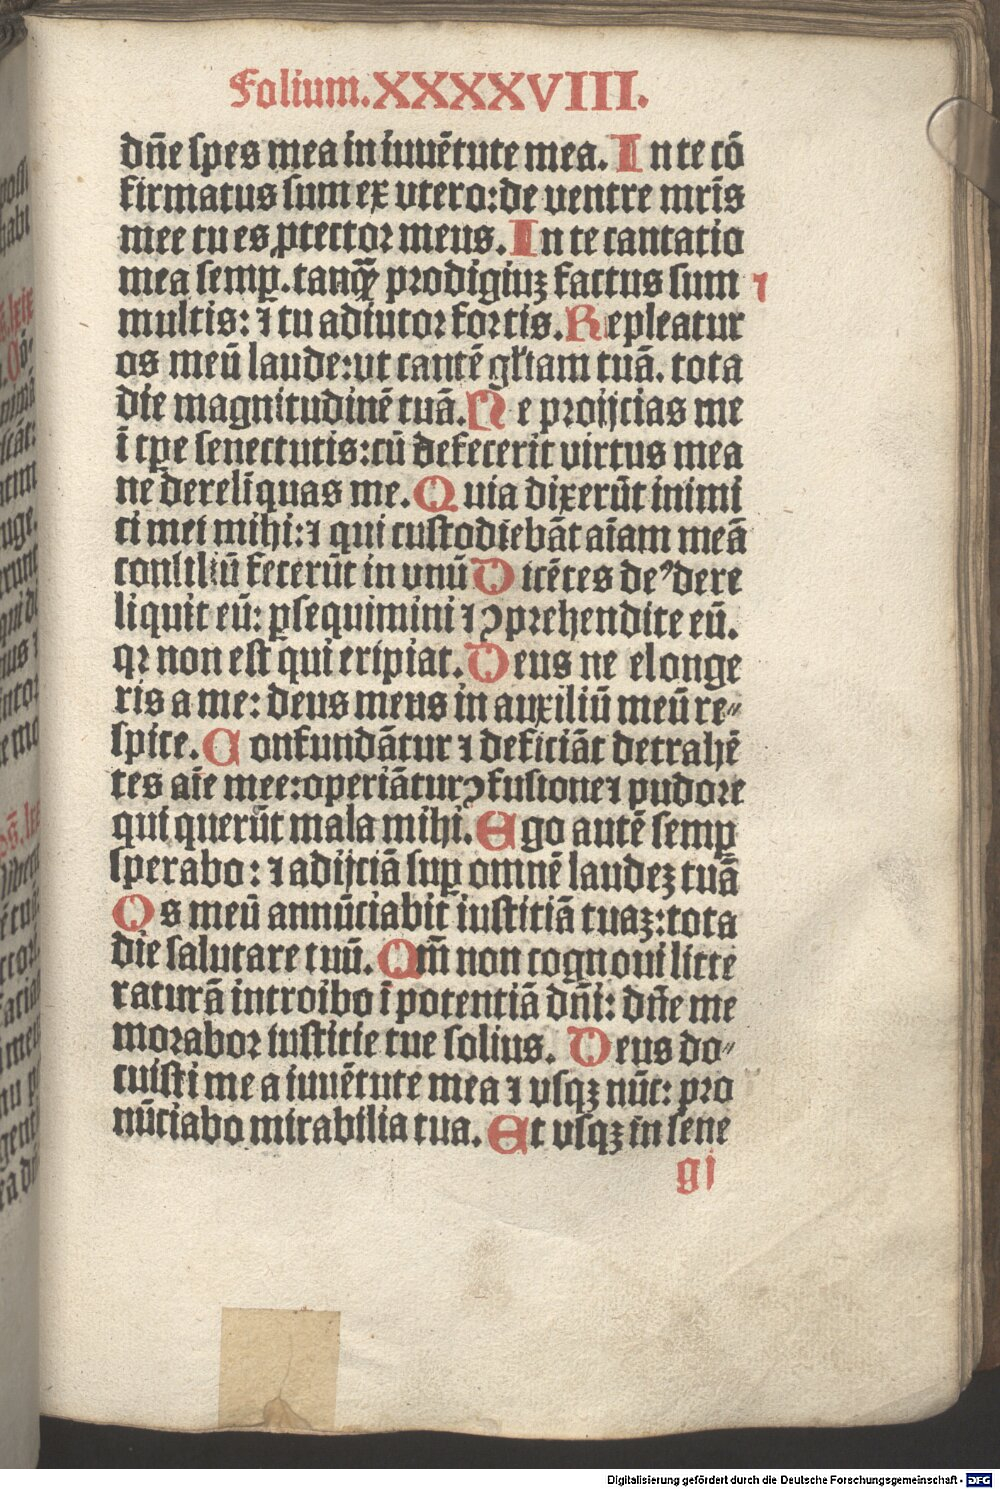 Folium.XXXXVIII.
dn̄e spes mea in iuuētute mea. In te cō
firmatus sum ex vtero: de uentre mr̄is
mee tu es ꝓtector meus. In te cantatio
mea semꝑ. tanqꝫ̄ prodigiuꝫ factus sum
multis: ⁊ tu adiutor fortis. Repleatur
os meū laude: ut cantē gl̄iam tuā. tota
die magnitudinē tuā. Ne proijcias me
ī tꝑe senectutis: cū defecerit virtus mea
ne derelīquas me. Quia dixerūt inimi
ci mei mihi: ⁊ qui custodiebāt aīam meā
consiliū fecerūt in vnū Dicētes deꝰ dere
liquit eū: ꝑsequimini ⁊ ↄprehendite eū.
qꝛ non est qui eripiat. Deus ne elonge
ris a me: deus meus in auxiliū meū re⸗
spice. Confundātur ⁊ deficiāt detrahē
tes aīe mee: operiātur ↄfusione ⁊ pudore
qui querūt mala mihi. Ego autē semꝑ
sperabo: ⁊ adijciā suꝑ omnē laudeꝫ tuā
Os meū annūciabit iustitiā tuaꝫ: tota
die salutare tuū. Qm̄ non cognoui litte
raturā introibo ī potentiā dn̄i: dn̄e me
morabor iustitie tue solius. Deus do⸗
cuisti me a iuuētute mea ⁊ vsqꝫ nūc: pro
nūciabo mirabilia tua. Et vsqꝫ in sene
gi
Digitalisierung gefördert durch die Deutsche Forschungsgemeinschaft - DFG